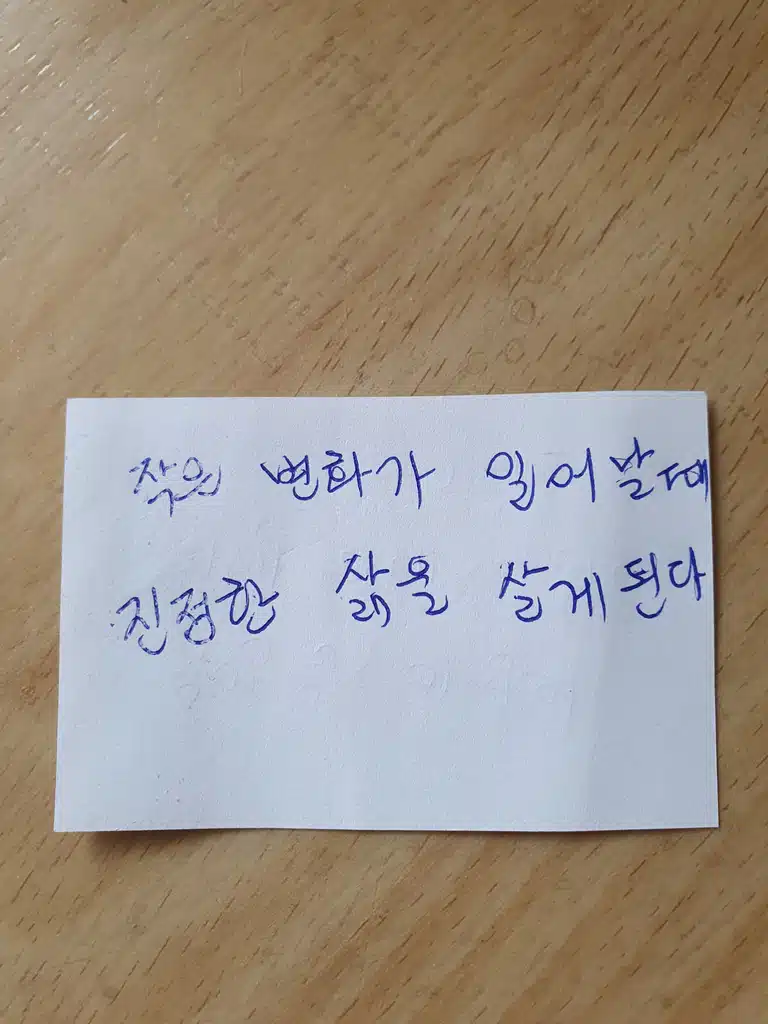 작은 변화가 일어날때
진정한 삶을 살게 된다